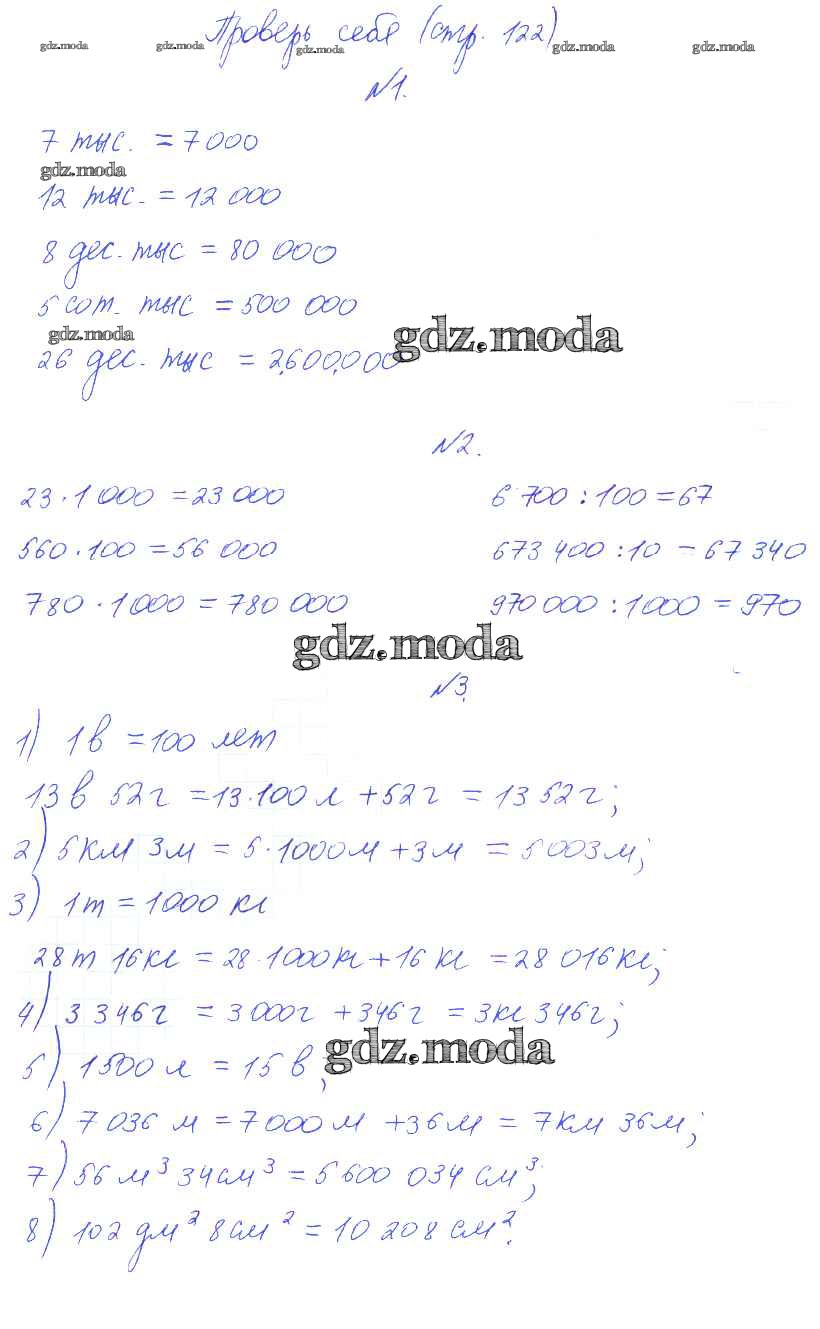 Проверь себя (стр. 122)
gdz.moda gdz.moda gdz.moda gdz.moda gdz.moda
№1.
7 тыс. = 7 000
gdz.moda
12 тыс. = 12 000
8 дес. тыс = 80 000
5 сот. тыс = 500 000
gdz.moda gdz.moda
26 дес. тыс = 2,600,000
№2.
23 · 1 000 = 23 000 6 700 : 100 = 67
560 · 100 = 56 000 673 400 : 10 = 67 340
780 · 1 000 = 780 000 970 000 : 1 000 = 970
gdz.moda
№3.
1) 1 в = 100 лет
13 в 52 г = 13 · 100 л + 52 г = 13 52 г;
2) 5 км 3 м = 5 · 1000 м + 3 м = 5 003 м;
3) 1 т = 1000 кг
28 т 16 кг = 28 · 1000 кг + 16 кг = 28 016 кг;
4) 3 346 г = 3 000 г + 346 г = 3 кг 346 г;
gdz.moda
5) 1500 л = 15 в;
6) 7 036 м = 7 000 м + 36 м = 7 км 36 м;
7) 56 м³ 34 см³ = 5 600 034 см³;
8) 102 дм² 8 см² = 10 208 см².